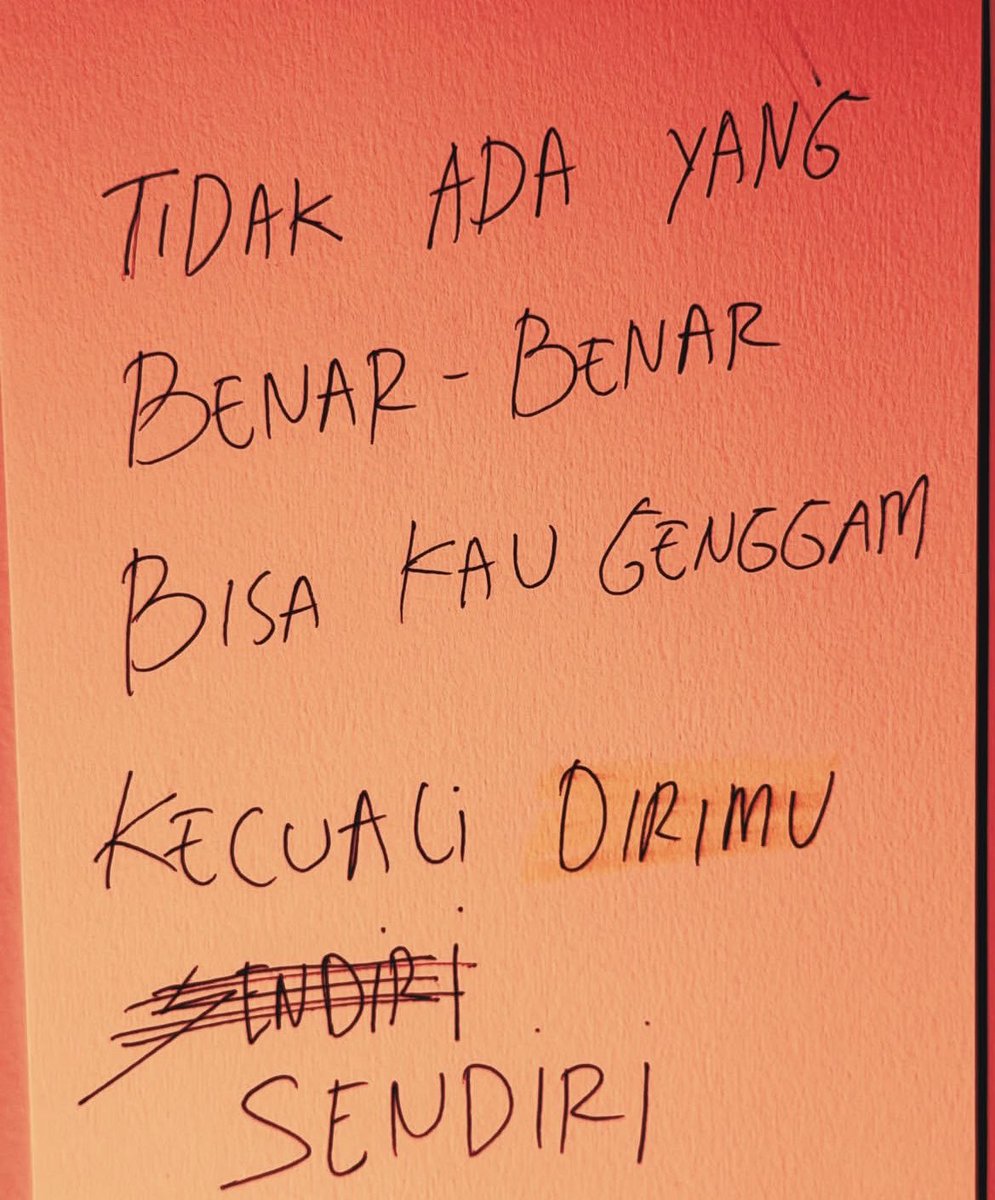 TIDAK ADA YANG
BENAR-BENAR
BISA KAU GENGGAM
KECUALi DIRIMU
SENDiRI
SENDiRi